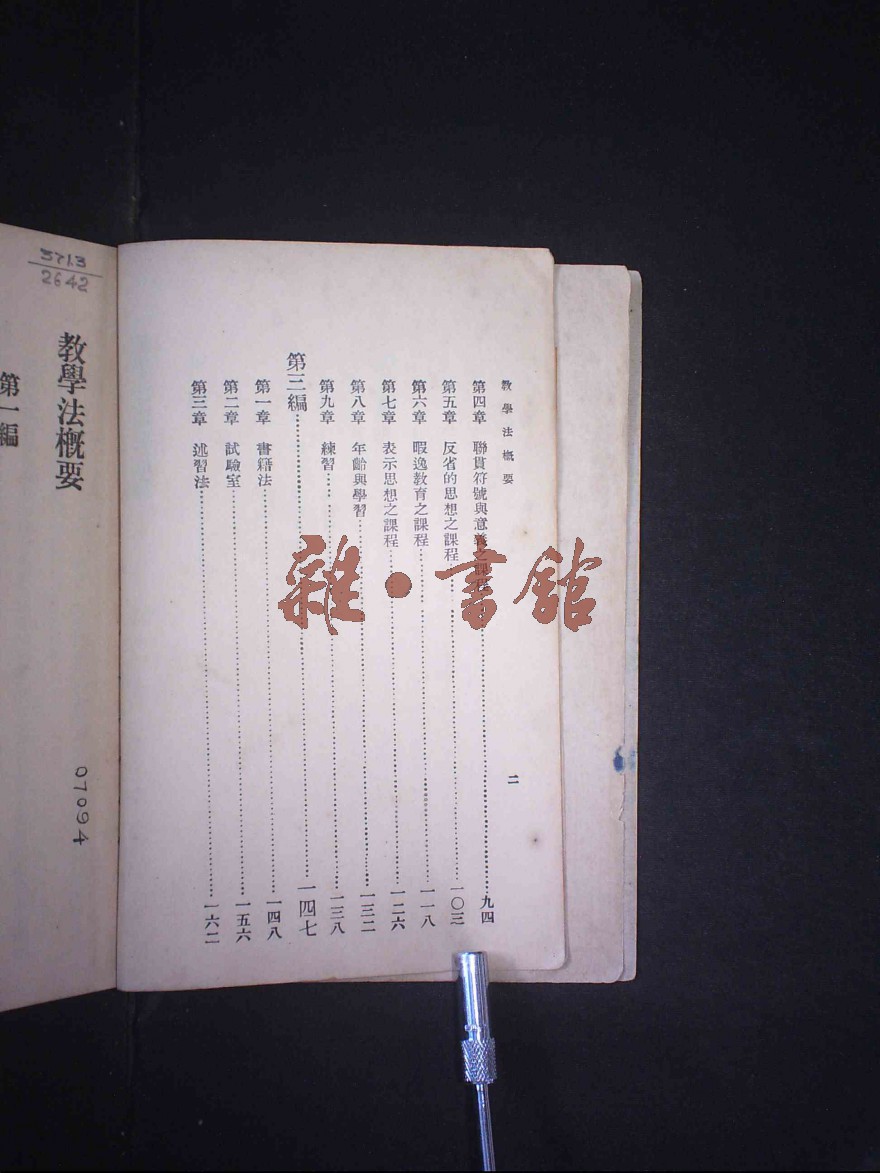 教學法概要
二
第四章 聯貫符號與意義之課程……九四
第五章 反省的思想之課程……一〇三
第六章 暇逸教育之課程……一一八
第七章 表示思想之課程……一二六
第八章 年齡與學習……一三二
第九章 練習……一三八
第三編……一四七
第一章 書籍法……一四八
第二章 試驗室……一五六
第三章 述習法……一六二
雜·書館
371.3
2642
教學法概要
第一編
07094